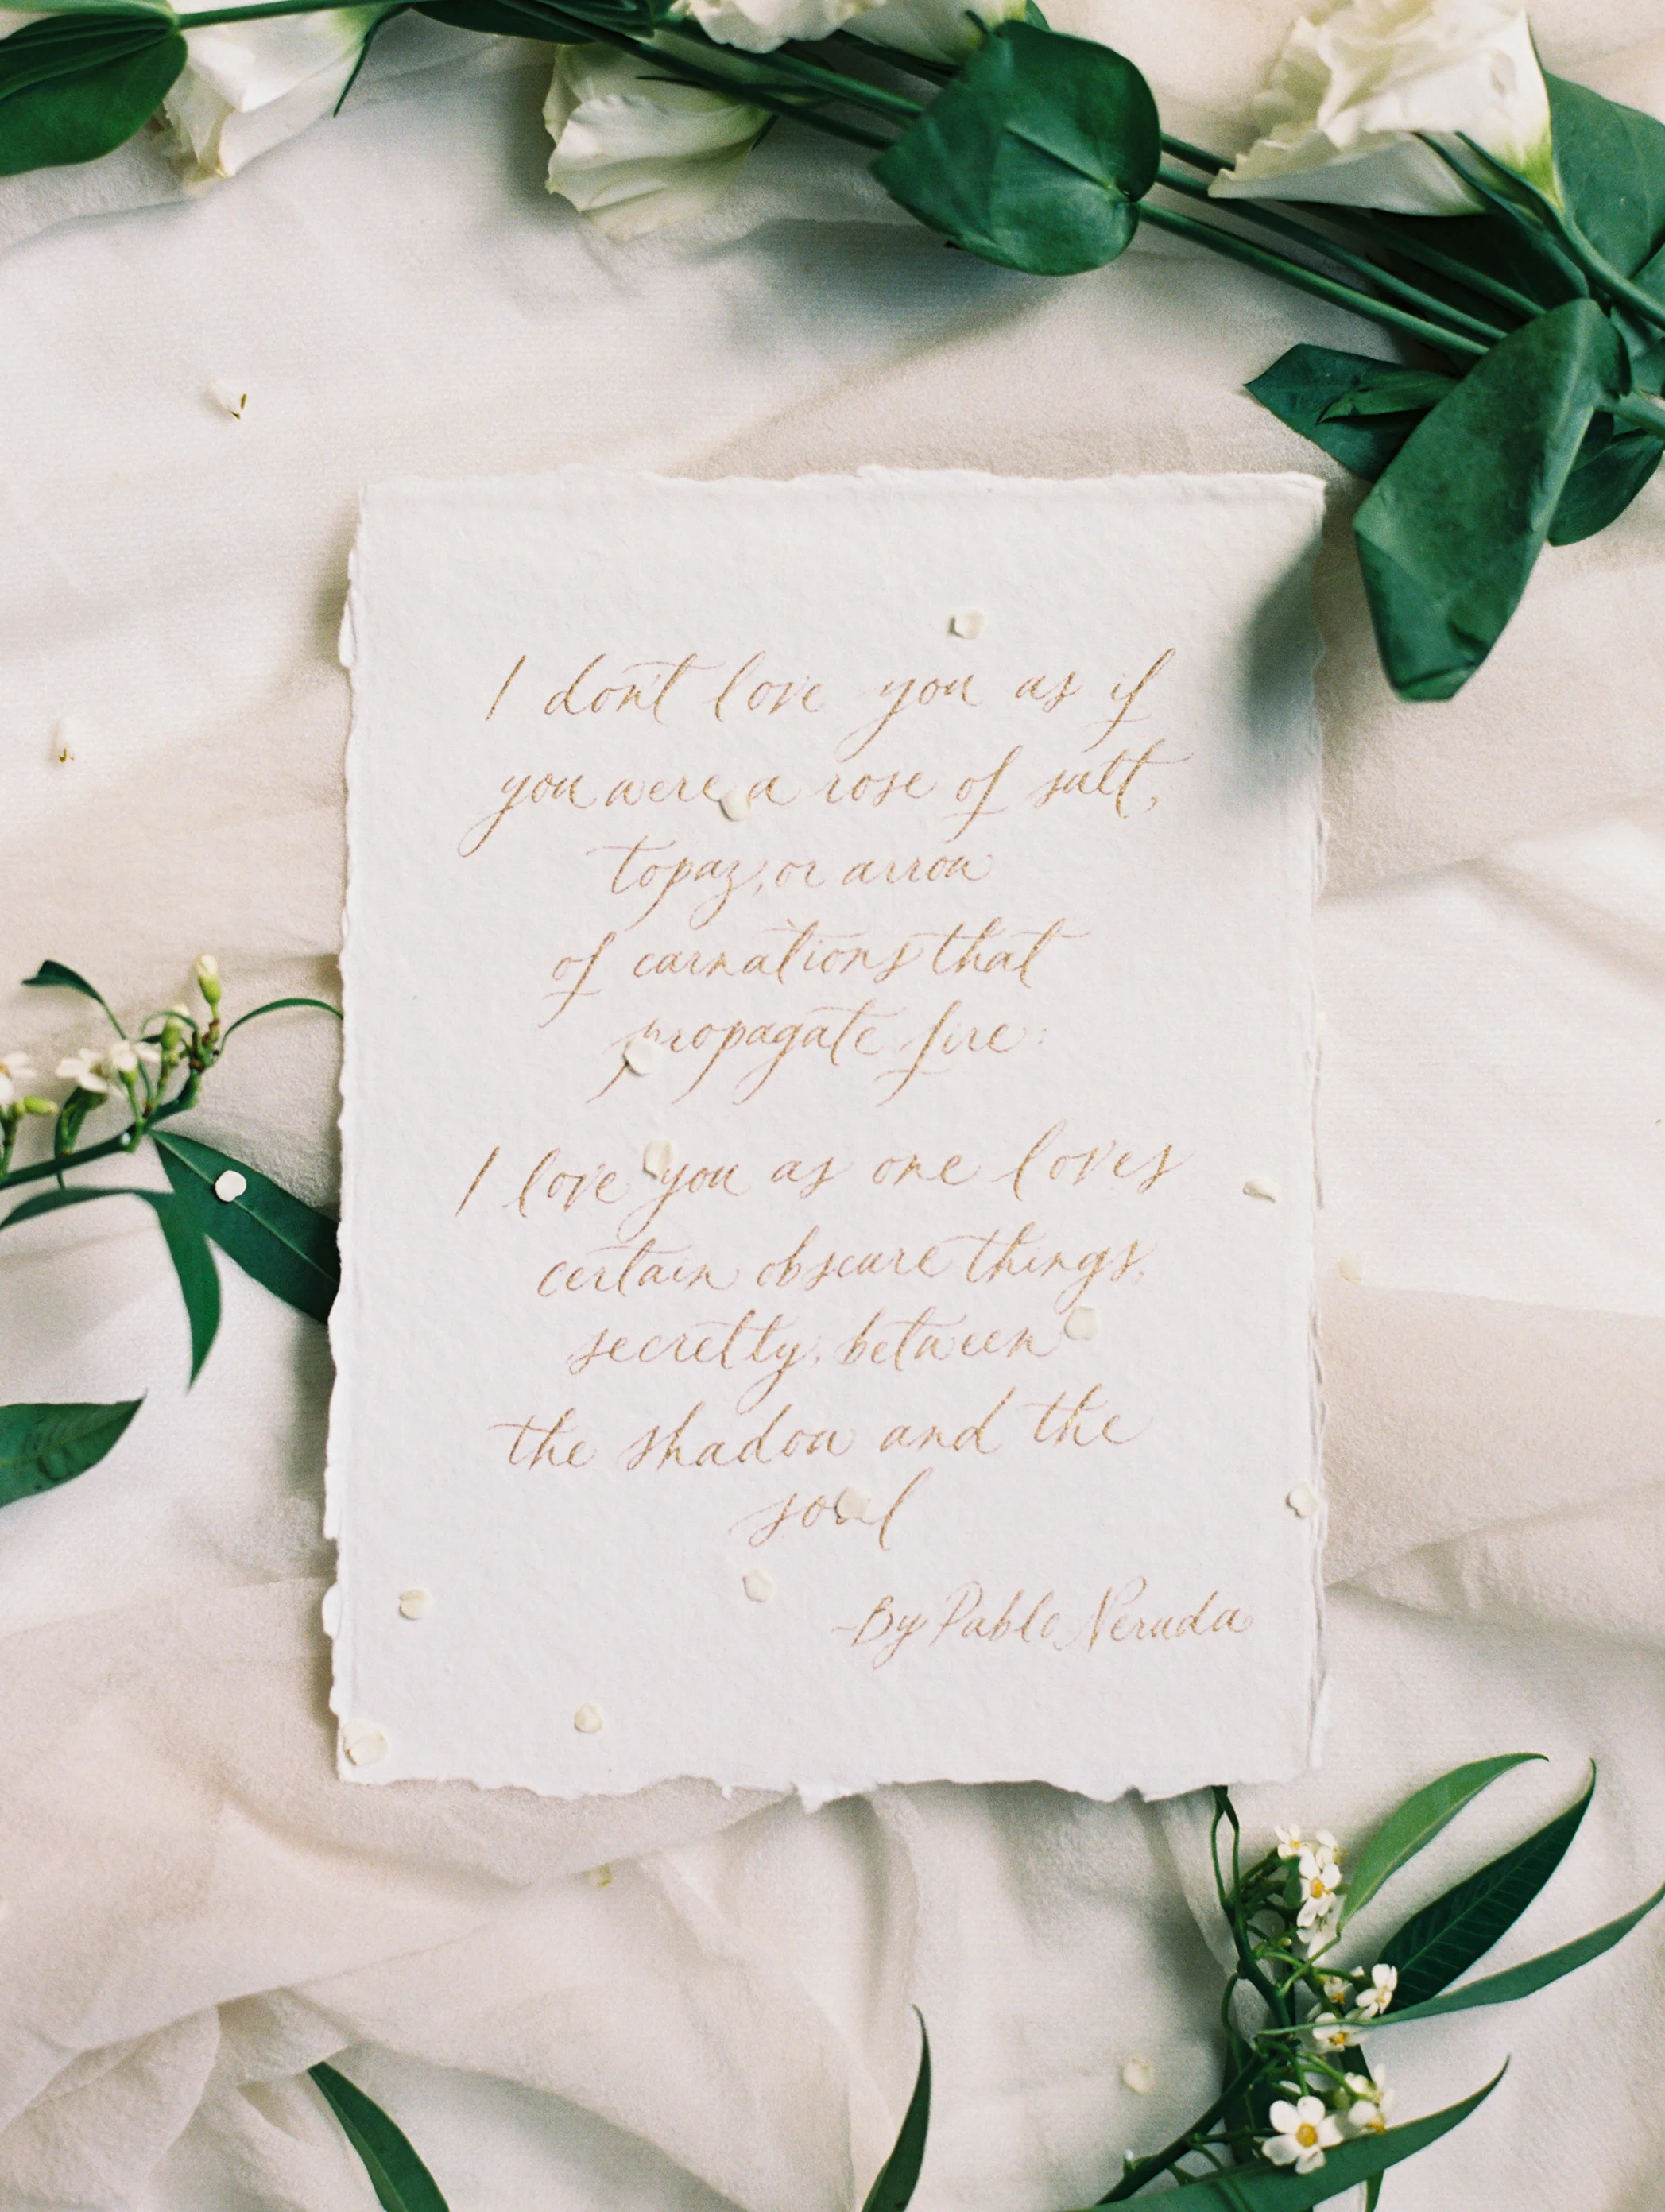 I don't love you as if
you were a rose of salt,
topaz, or arrow
of carnations that
propagate fire:
I love you as one loves
certain obscure things,
secretly, between
the shadow and the
soul
-By Pablo Neruda